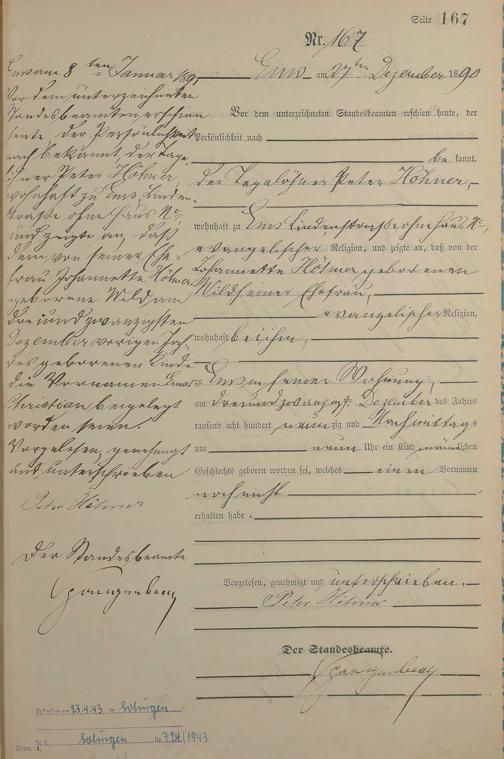 Seite 167
Nr. 167
Ems am 27ten Dezember 1890
Vor dem unterzeichneten Standesbeamten erschien heute, der
Persönlichkeit nach
be kannt,
der Tagelöhner Peter Höhner,
wohnhaft zu Ems Lindenstraße ohne Haus Nr.,
evangelischer Religion, und zeigte an, daß von der
Johannette Höhner geborenen
Wild seiner Ehefrau,
evangelischer Religion,
wohnhaft bei ihm,
zu Ems in seiner Wohnung,
am dreiundzwanzigst. Dezember des Jahres
tausend acht hundert neunzig und Nachmittags
um neun Uhr ein Kind männlichen
Geschlechts geboren worden sei, welches einen Vornamen
noch nicht
erhalten habe.
Vorgelesen, genehmigt und unterschrieben.
Peter Höhner
Der Standesbeamte.
Spangenberg
Ems am 8ten Januar 1891
Vor dem unterzeichneten
Standesbeamten erschien
heute, der Persönlichkeit
nach bekannt, der Tage-
löhner Peter Höhner
wohnhaft zu Ems Linden-
straße ohne Haus Nr.
und zeigte an, daß
dem von seiner Ehe-
frau Johannette Höhner
geborene Wild am
dreiundzwanzigsten
Dezember vorigen Jah-
res geborenen Kinde
die Vornamen
Christian beigelegt
worden seien.
Vorgelesen, genehmigt
und unterschrieben
Peter Höhner
Der Standesbeamte
Spangenberg
23.4.43 in Solingen
Solingen Nr. 724/1943
Form. A.